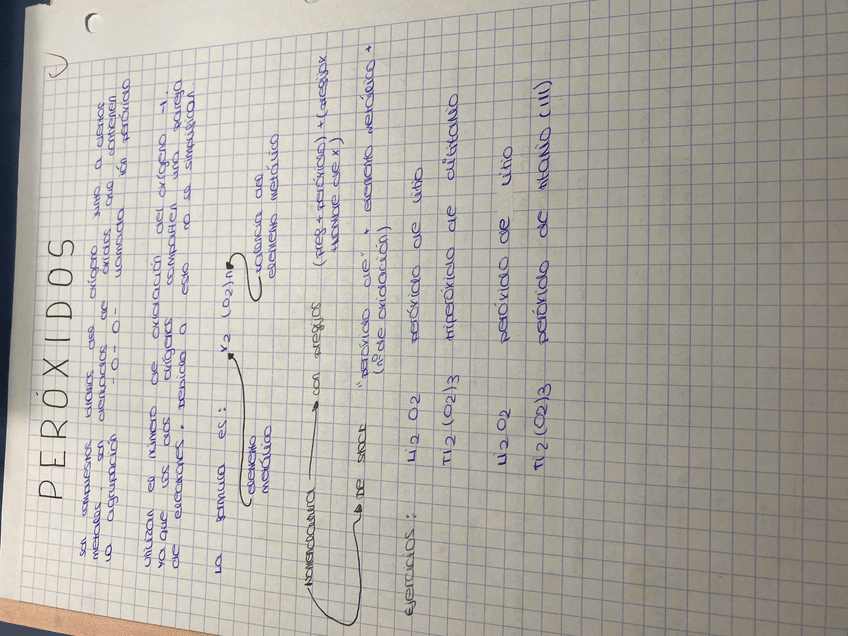 PERÓXIDOS
son compuestos binarios del oxígeno junto a ciertos
metales. son derivados de óxidos que contienen
la agrupación -O-O- llamada ión peróxido
utilizan el número de oxidación del oxígeno -1.
ya que los dos oxígenos comparten una pareja
de electrones. Debido a esto no se simplifican
La fórmula es: X2 (O2)n
elemento metálico
valencia del elemento metálico
Nomenclatura con prefijos (pref + peróxido) + (prefijo x
+ nombre de x)
De stock "peróxido de" + elemento metálico +
(nº de oxidación)
Ejercicios: Li2O2 peróxido de litio
Ti2(O2)3 triperóxido de dititanio
Li2O2 peróxido de litio
Ti2(O2)3 peróxido de titanio (III)